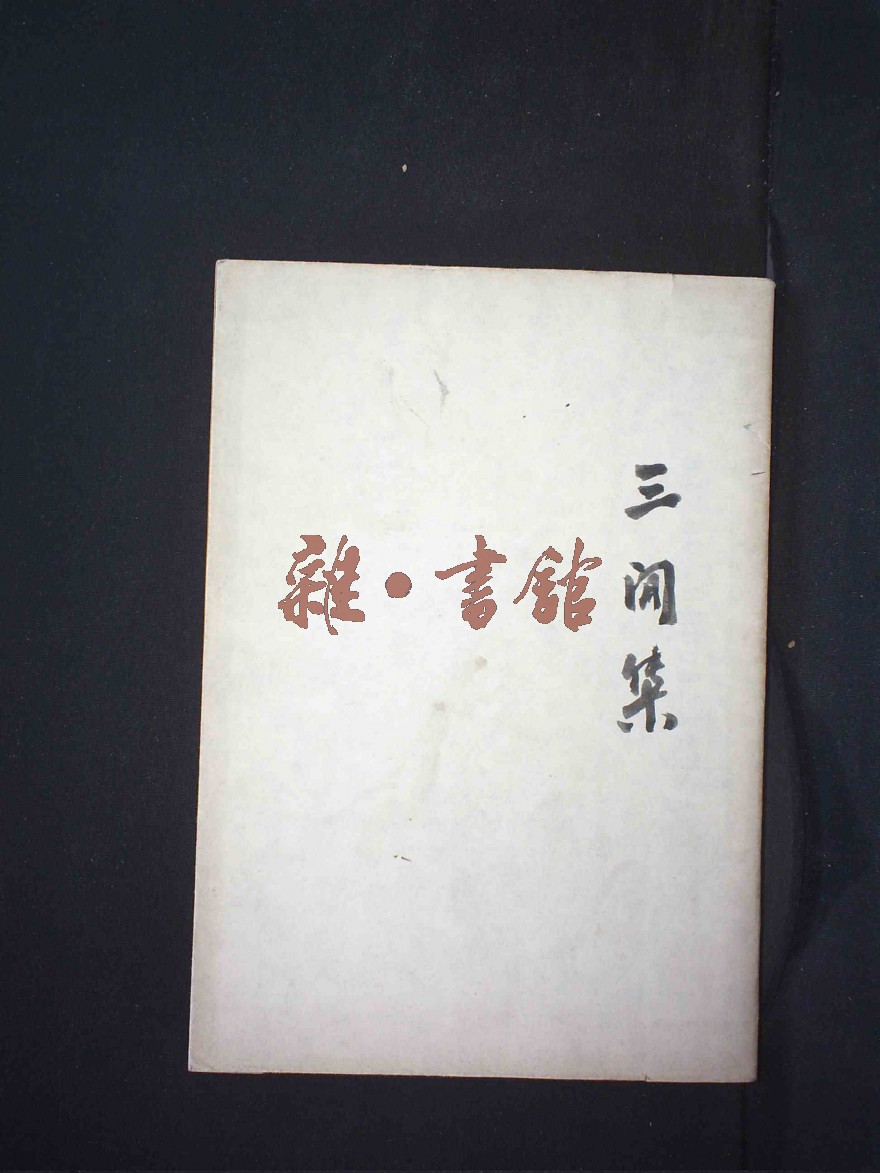 三闲集
雜·書館